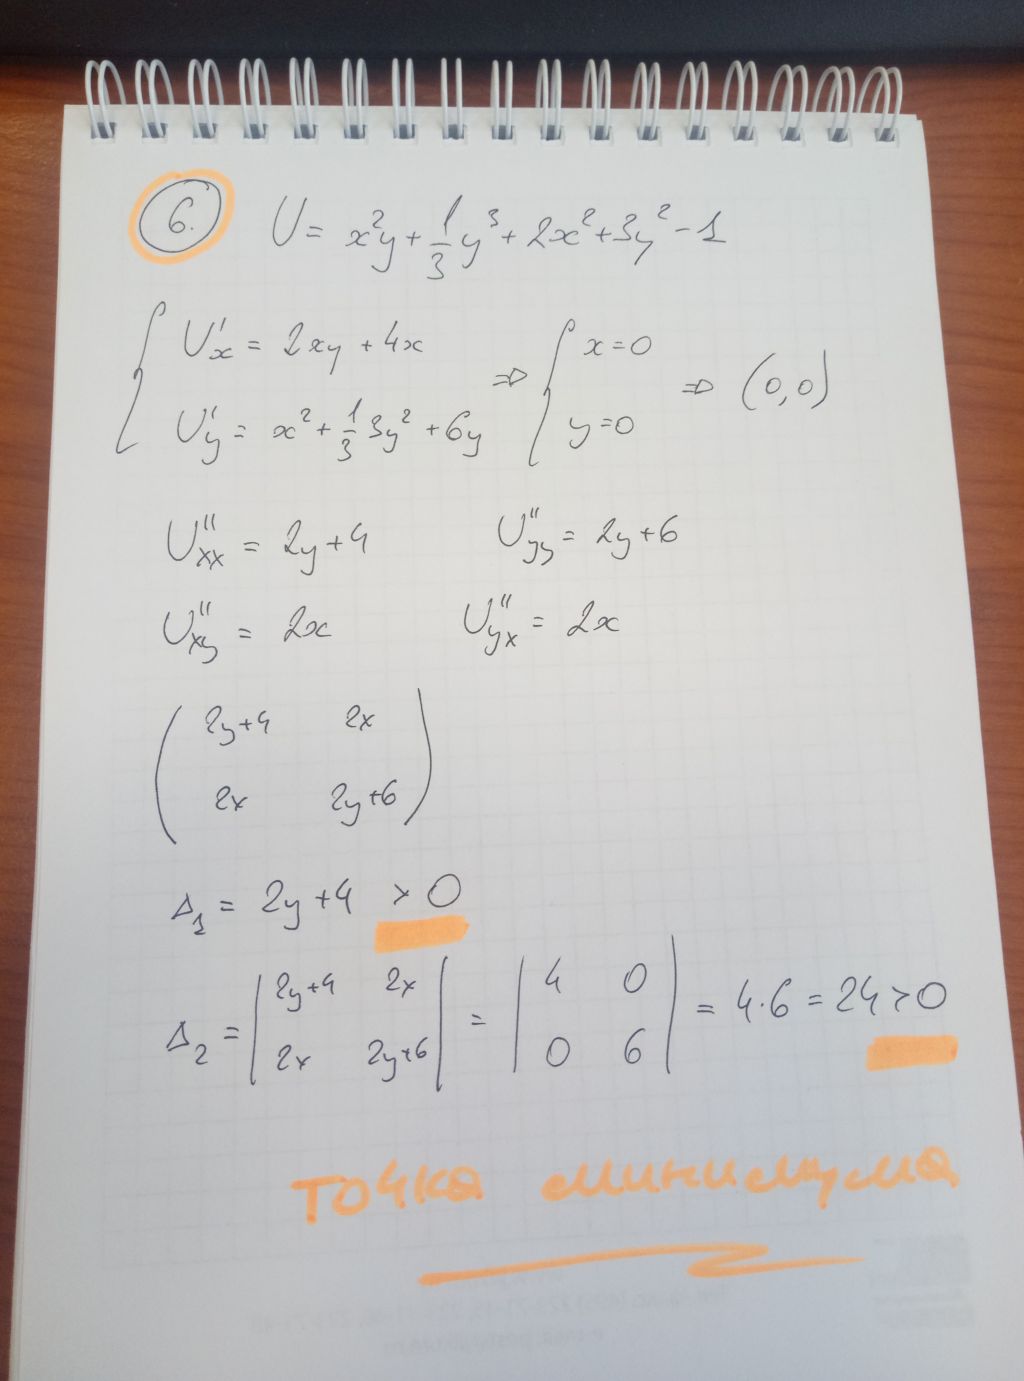 6. U = x²y + 1/3 y³ + 2x² + 3y² - 1
{ U'x = 2xy + 4x
U'y = x² + 1/3 3y² + 6y
⇒ { x = 0
y = 0
⇒ (0,0)
U''xx = 2y+4 U''yy = 2y+6
U''xy = 2x U''yx = 2x
( 2y+4 2x
2x 2y+6 )
Δ1 = 2y+4 > 0
Δ2 = | 2y+4 2x | = | 4 0 | = 4·6 = 24 > 0
| 2x 2y+6 | | 0 6 |
точка минимума